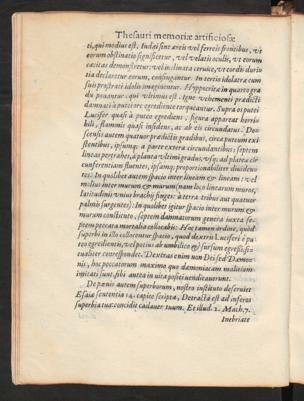 Thesauri memoriæ artificiosæ
ti, qui modius est. Iudæi sine æreis vel ferreis frontibus, vt
eorum obstinatio significetur, vel velatis oculis, vt eorum
cæcitas demonstretur: vel inclinata ceruice, vt
tia declaretur eorum, confingantur. In tertio idolatræ cum
suis prostrati idolis imaginentur. Hyppocritæ in quarto gra
du ponantur. qui vltimus est. Igne vehementi prædicti
damnati à puteo ore egrediente torqueantur. Supra os putei
Lucifer quasi à puteo egrediens, figura appareat horri
bili, flammis quasi insidens, ac ab eis circundatus.
septem autem quatuor gradibus, circa puteum exi
stentibus, ipsumq; à parte externa circundantibus: septem
lineas pertrahes, à planta vltimi gradus, vsq; ad plateæ cir
cunferentiam fluentes, ipsamq; proportionabiliter diuiden
tes. In quolibet autem spacio inter lineam & lineam: vel
melius inter murum & murum (nam loco linearum muros,
latitudinis vnius brachij finges: à terra tribus aut quatuor
palmis surgentes) In quolibet igitur spacio inter murum &
murum constituto, septem damnatorum genera iuxta se
ptem peccata mortalia collocabis. Hoc tamen ordine, quod
superbi in illo collocentur spacio, quod dextris Luciferi è pu
teo egredientis, vel potius ab vmbilico & sursum
taliter correspondet. Dextras enim non Dei sed Dæmo
nis, hoc peccatorum maximo quæ dæmoniacam malitiam
imitati sunt sibi antea in vita posici vendicauerunt.
De pœnis autem superborum, nostro instituto deseruit
Esaiæ sententia 14. capite scripta, Detracta est ad inferos
superbia tua: concidit cadauer tuum. Et illud. 1. Mach. 7.
Inebriate